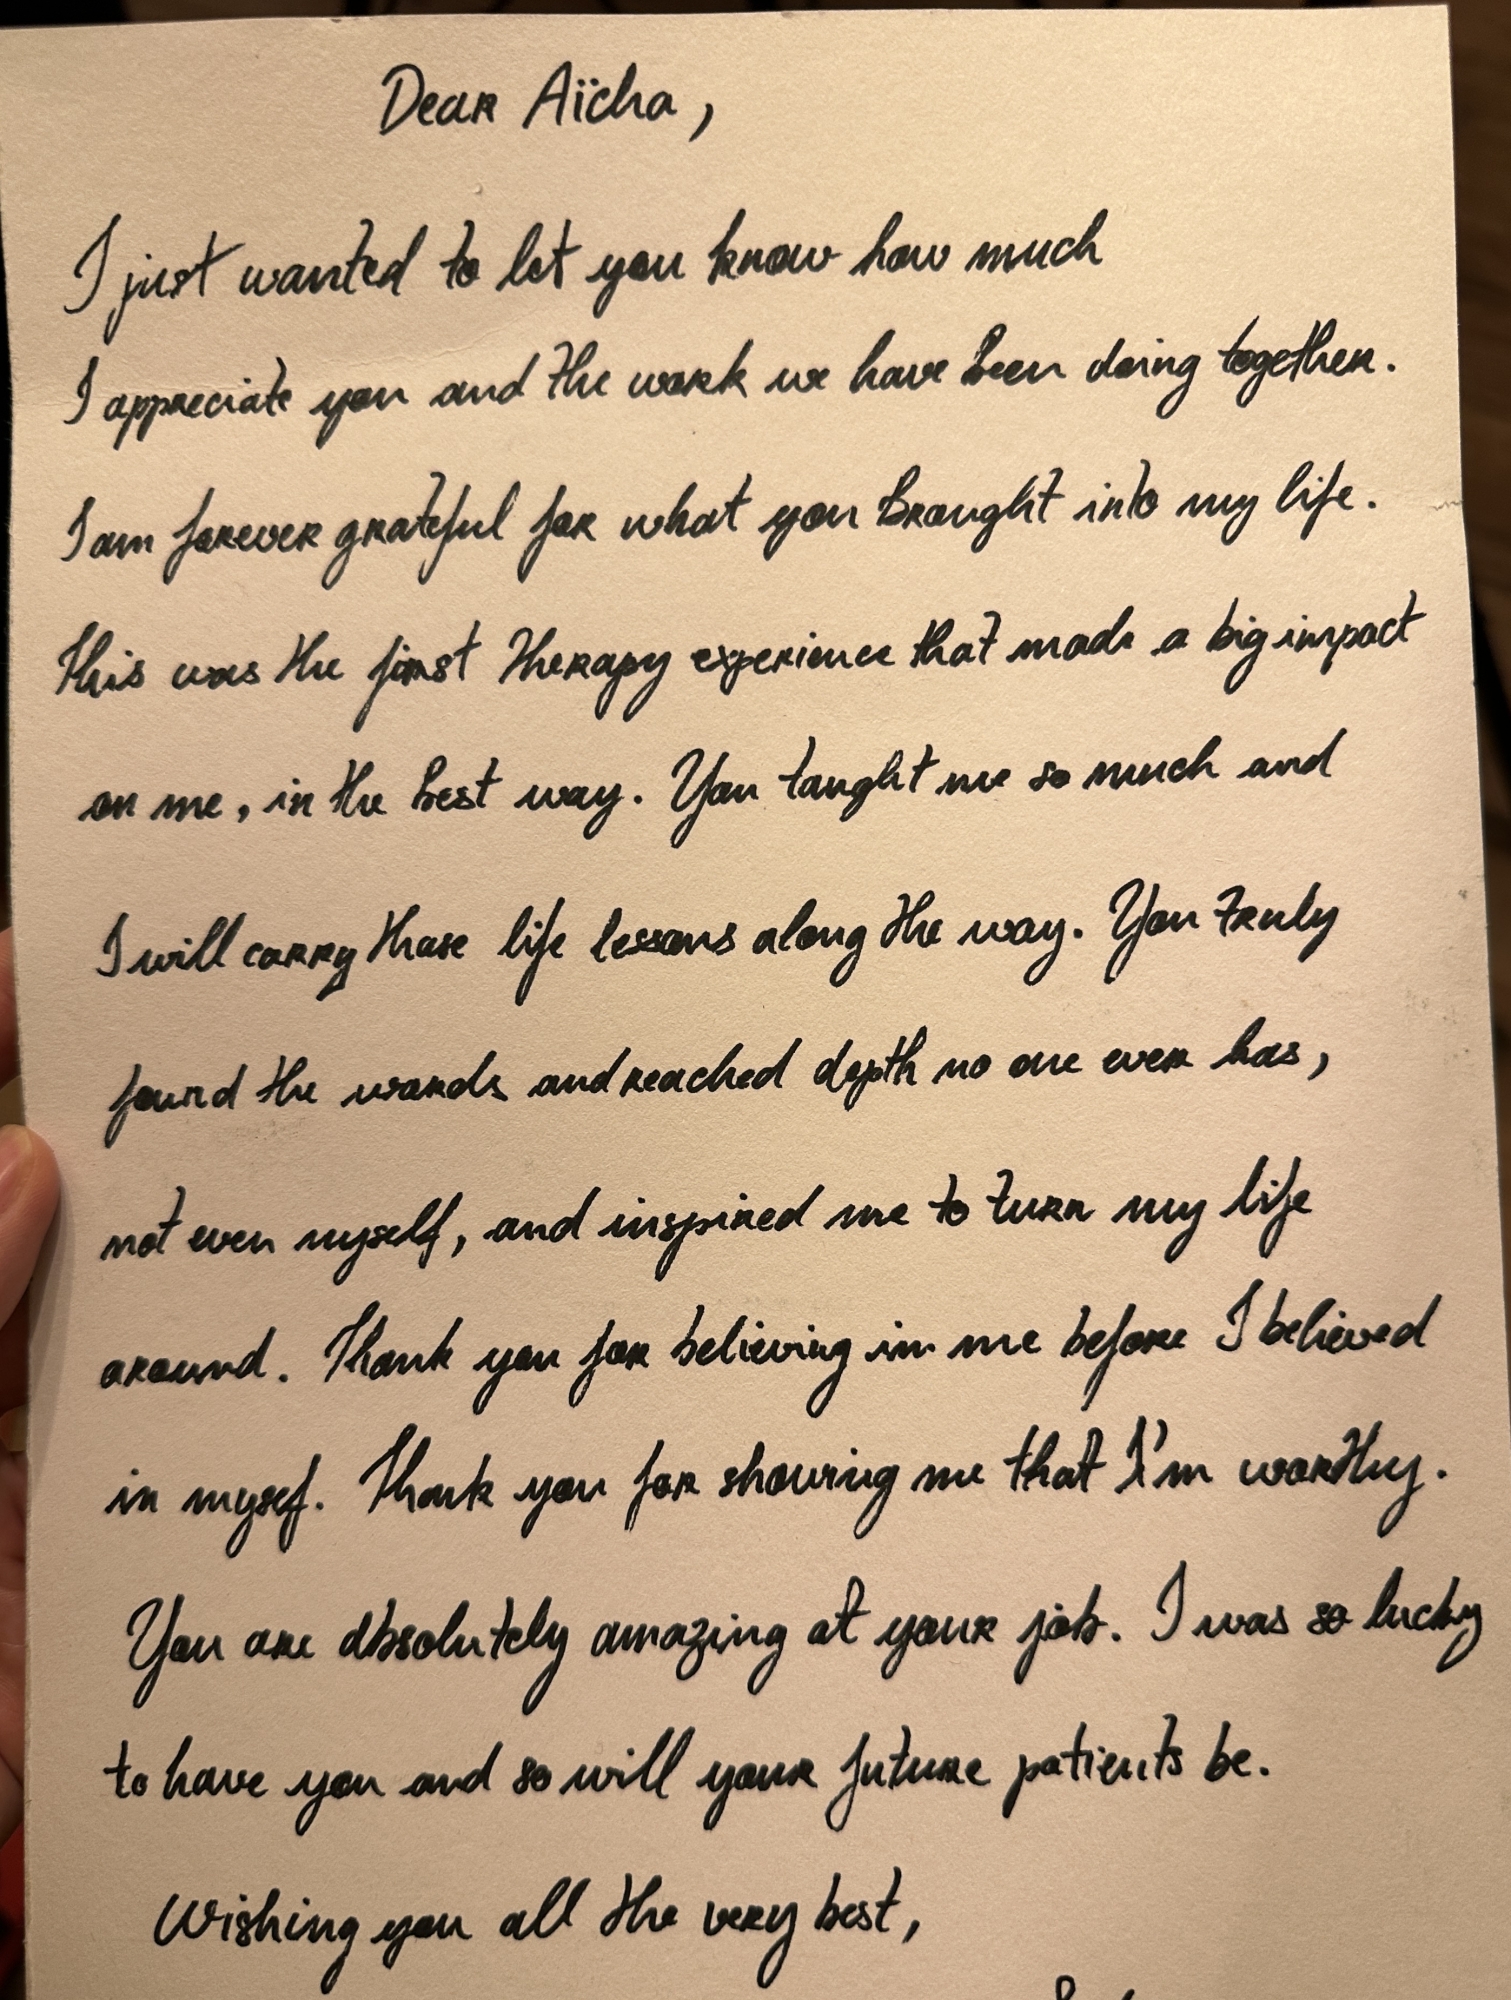 Dear Aïcha,
I just wanted to let you know how much
I appreciate you and the work we have been doing together.
I am forever grateful for what you brought into my life.
This was the first therapy experience that made a big impact
on me, in the best way. You taught me so much and
I will carry those life lessons along the way. You truly
found the words and reached depth no one ever has,
not even myself, and inspired me to turn my life
around. Thank you for believing in me before I believed
in mysef. Thank you for showing me that I'm worthy.
You are absolutely amazing at your job. I was so lucky
to have you and so will your future patients be.
Wishing you all the very best,